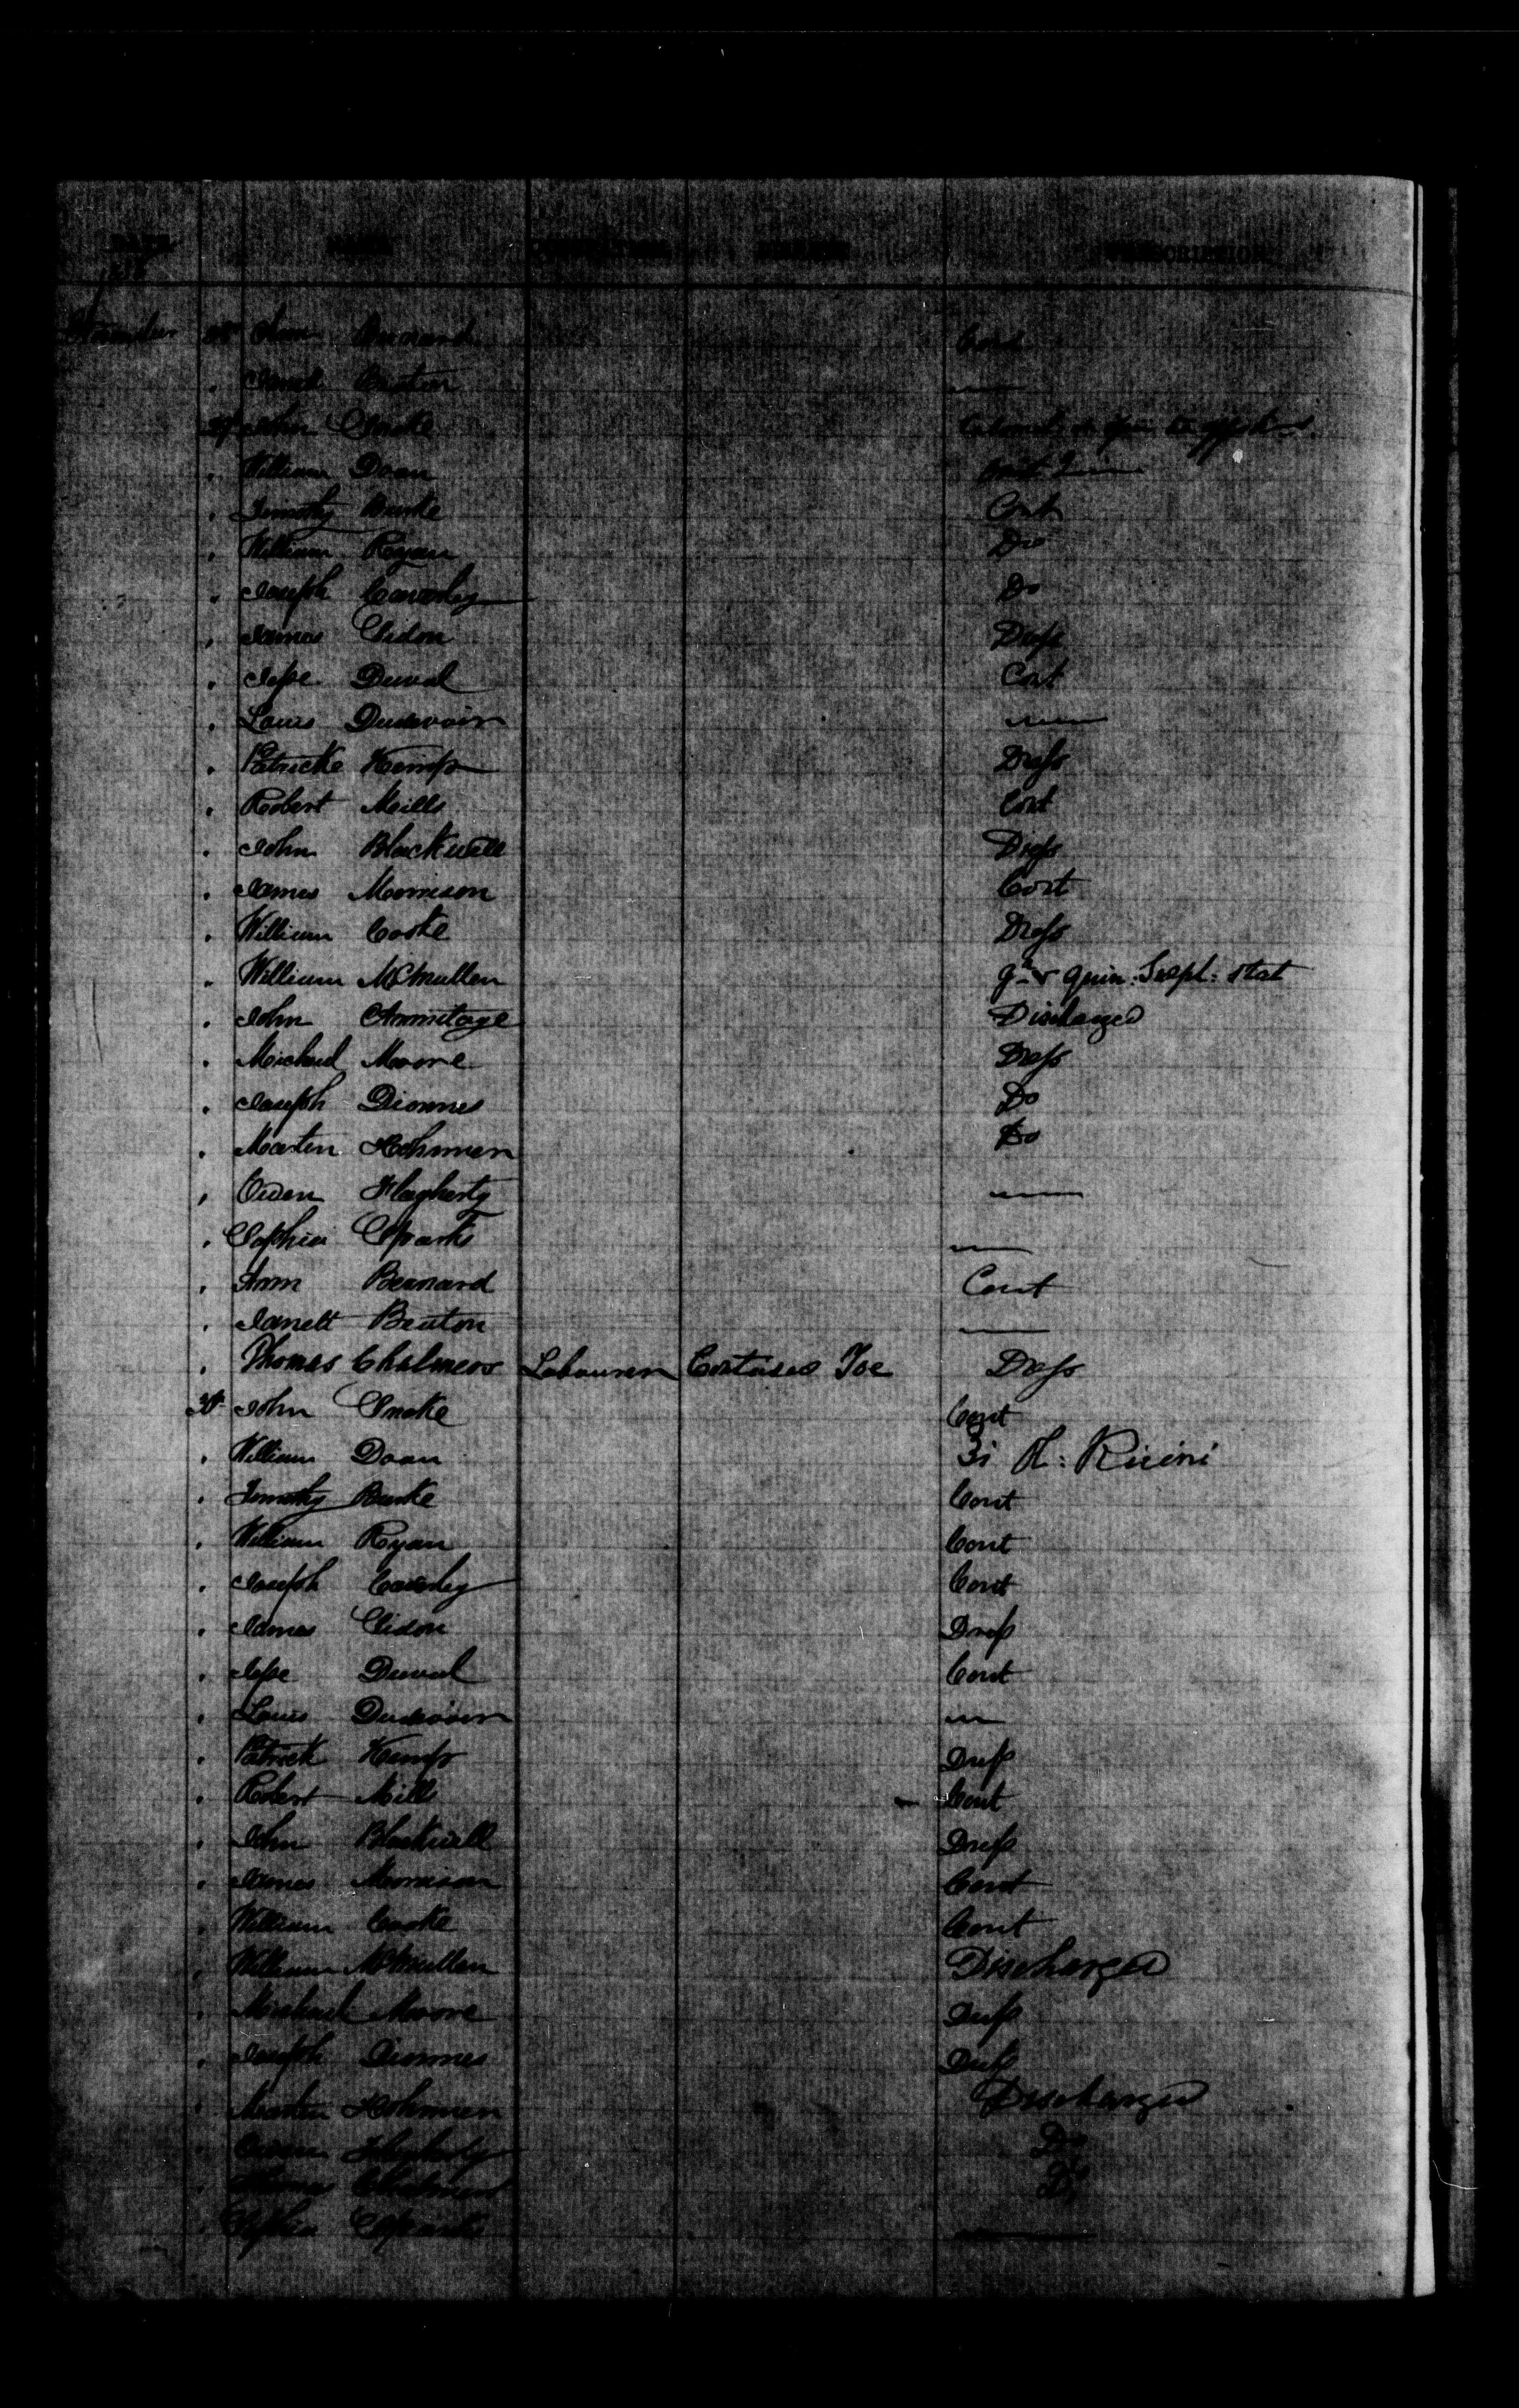 DATE NAME PRESCRIPTION
November 28 Ann Bernard Cont
" Janett Bruton
29 John Snoke
" William Doan
" Timothy Burke Cont
" William Ryan Do
" Joseph Caverley Do
" James Dress
" Jesse Duval Cont
" Louis Dudevoir
" Patricke Kemp Dress
" Robert Mills Cont
" John Blackwell Dress
" James Morrison Cont
" William Cooke Dress
" William McMullen quin: Sulph: stat
" John Armitage Discharged
" Michael Moore Dress
" Joseph Dionnes Do
" Martin Hohmmen Do
" Owen Flagherty
" Sophia Sparks
" Ann Bernard Cont
" Janett Bruton
" Thomas Chalmers Labourer Contused Toe Dress
30 John Snoke Cont
" William Doan 3i Ol: Ricini
" Timothy Burke Cont
" William Ryan Cont
" Joseph Caverley Cont
" James Dress
" Jesse Duval Cont
" Louis Dudevoir
" Patrick Kemp Dress
" Robert Mills Cont
" John Blackwell Dress
" James Morrison Cont
" William Cooke Cont
" William McMullen Discharged
" Michael Moore Dress
" Joseph Dionnes Dress
" Martin Hohmmen Discharged
" Owen Flagherty Do
" Thomas Chalmers Do
" Sophia Sparks